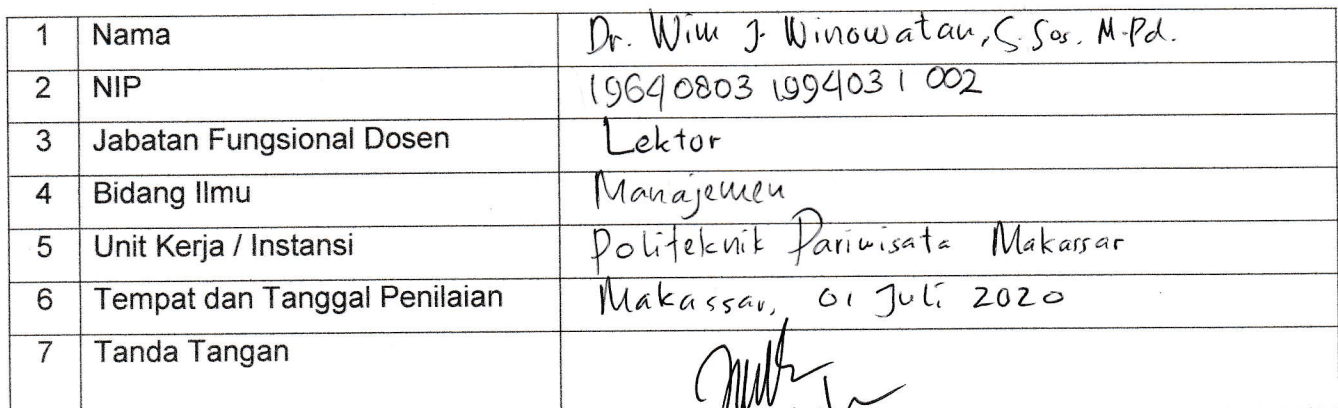 1 Nama Dr. Wim J. Winowatan, S.Sos. M.Pd.
2 NIP 19640803 199403 1 002
3 Jabatan Fungsional Dosen Lektor
4 Bidang Ilmu Manajemen
5 Unit Kerja / Instansi Politeknik Pariwisata Makassar
6 Tempat dan Tanggal Penilaian Makassar, 01 Juli 2020
7 Tanda Tangan